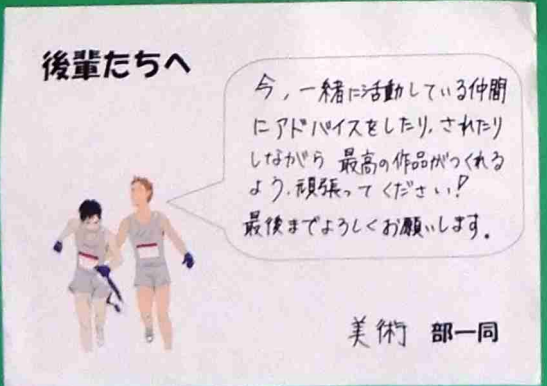 後輩たちへ
今、一緒に活動している仲間
にアドバイスをしたり、されたり
しながら 最高の作品がつくれる
よう、頑張ってください!
最後までよろしくお願いします。
美術 部一同